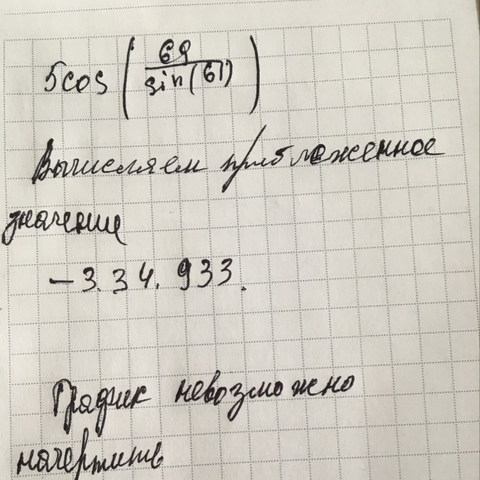 5cos(69/sin(61))
Вычисляем приближенное
значение
-3.34.933.
График невозможно
начертить